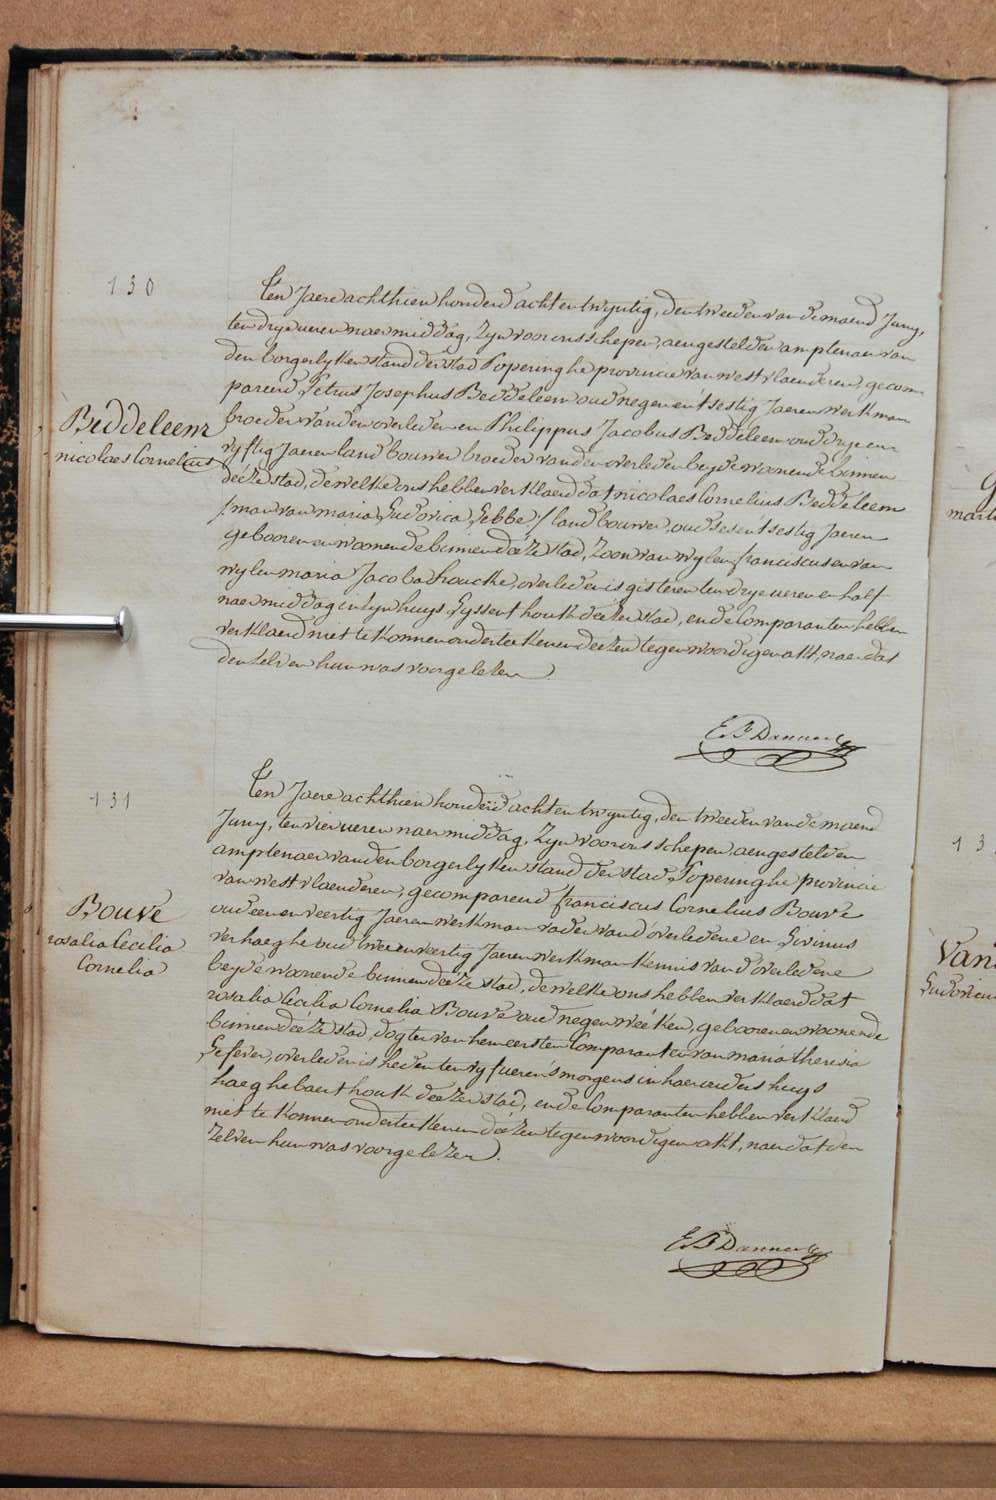 130
Beddeleem
nicolaes Cornelius
Ten Jaere achthien honderd acht en twyntig, den tweeden van de maend Juny,
ten drye ueren naer middag, Zyn voor ons schepen, aengestelden amptenaer van
den borgerlyken stand der stad Poperinghe provincie van westvlaenderen, gecom
pareerd, Petrus Josephus Beddeleem oud negen en tsestig Jaeren werkman
broeder van den overleden en Philippus Jacobus Beddeleem oud drye en
vyftig Jaeren landbouwer broeder van den overleden beyde woonende binnen
deéze stad, dewelke ons hebben verklaerd dat nicolaes Cornelius Beddeleem
/: man van maria Ludovica Lebbe :/ landbouwer, oud ses en tsestig Jaeren
gebooren en woonende binnen deéze stad, Zoon van wylen franciscus en van
wylen maria Jacoba houcke, overleden is gisteren ten drye ueren en half
naer middag in zyn huys Eyssenthouk deézer stad, en de Comparanten hebben
verklaerd niet te konnen onderteekenen deézen tegenwoordigen akt, naer dat
den zelven hun was voorgelezen.
131
Bouve
rosalia Cecilia
Cornelia
Ten Jaere achthien honderd acht en twyntig, den tweeden van de maend
Juny, ten vier ueren naer middag, Zyn voor ons schepen, aengestelden
amptenaer van den borgerlyken stand der stad Poperinghe provincie
van westvlaenderen, gecompareerd franciscus Cornelius Bouve
oud een en veertig Jaeren werkman vader van d'overledene en Livinus
verhaeghe oud twee en veertig Jaeren werkman kennis van d'overledene
beyde woonende binnen deéze stad, dewelke ons hebben verklaerd dat
rosalia Cecilia Cornelia Bouve oud negen weéken, gebooren en woonende
binnen deéze stad, dogter van hem eersten Comparant en van maria theresia
Lefever, overleden is heden ten vyf ueren smorgens in haer ouders huys
haeghebaerthouk deézer stad, en de Comparanten hebben verklaerd
niet te konnen onderteekenen deézen tegenwoordigen akt, naer dat den
zelven hun was voorgelezen.